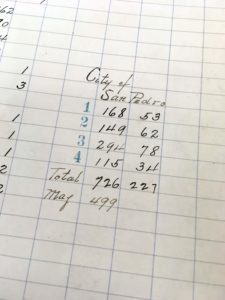 62
1
3
1
1
1
City of
San Pedro
1 168 53
2 149 62
3 294 78
4 115 34
Total 726 227
Maj 499